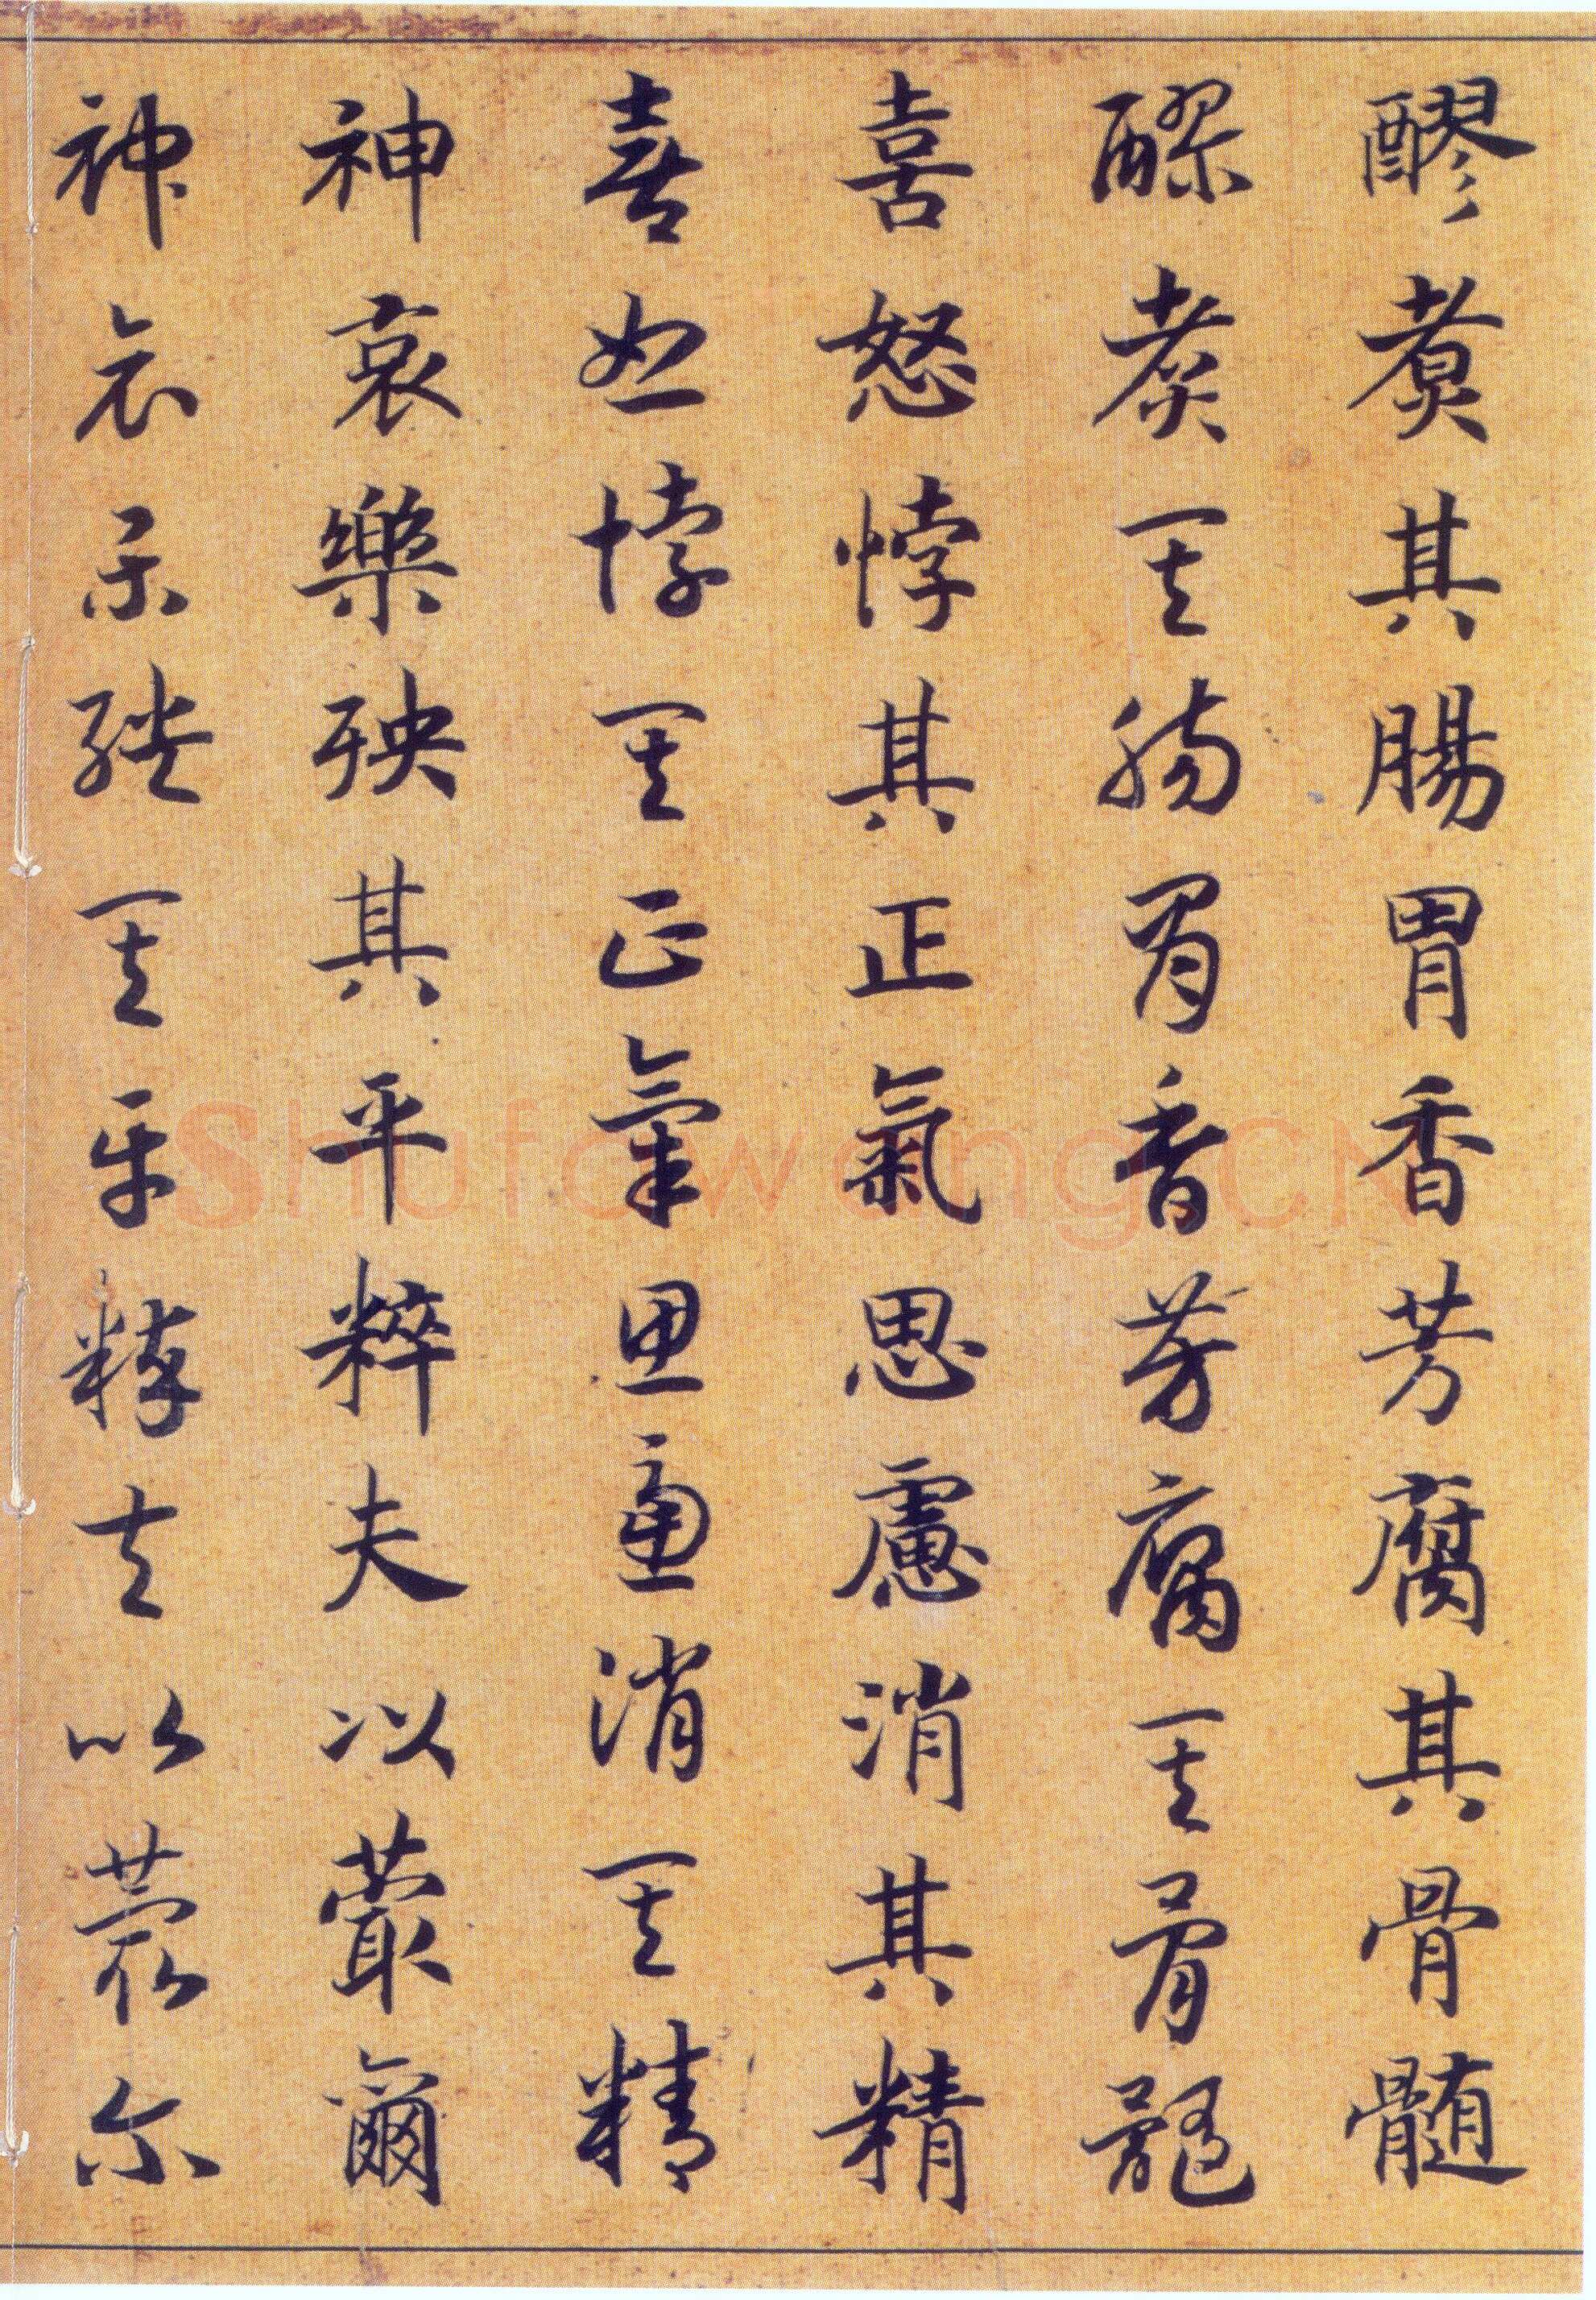 醪煑其腸胃香芳腐其骨髓
醪煑其腸胃香芳腐其骨髓
喜怒悖其正氣思慮消其精
喜怒悖其正氣思慮消其精
神哀樂殃其平粹夫以蕞爾
神哀樂殃其平粹夫以蕞尔
Shufawang.CN